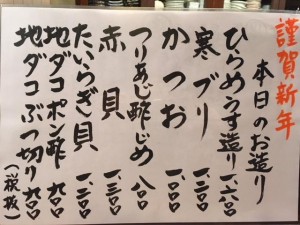 謹賀新年
本日のお造り
ひらめうす造り 一、六八〇
寒ブリ 一、二八〇
かつお 一、八〇〇
つりあじ酢じめ 八〇〇
赤貝 一、三〇〇
たいらぎ貝 一、二〇〇
地ダコポン酢 九〇〇
地ダコぶつ切り 九〇〇
(税抜)